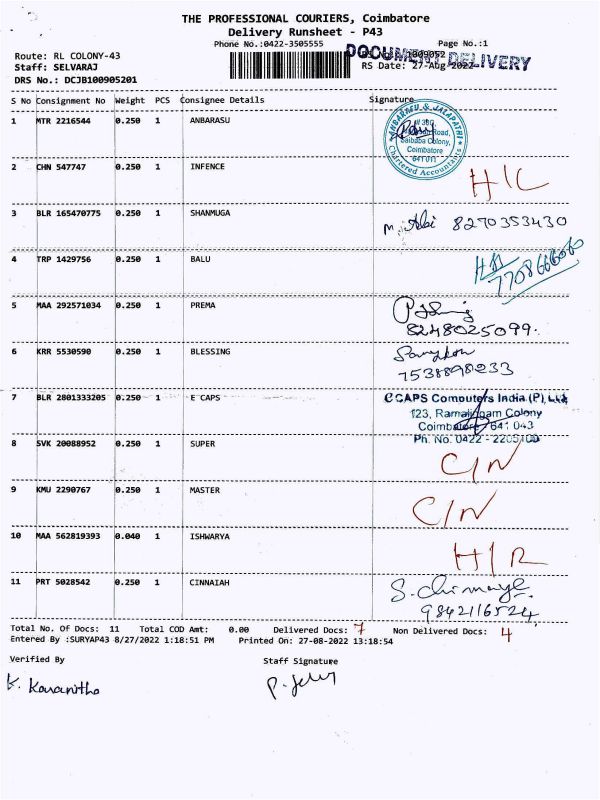 THE PROFESSIONAL COURIERS, Coimbatore
Delivery Runsheet - P43
Phone No.:0422-3505555 Page No.:1
DOCUMENT DELIVERY
Route: RL COLONY-43
Staff: SELVARAJ RS Date: 27-Aug-2022
DRS No.: DCJB100905201
S No Consignment No Weight PCS Consignee Details Signature
1 MTR 2216544 0.250 1 ANBARASU
ANBARASU & JALAPATHI
Road,
Saibaba Colony,
Coimbatore
641 011
Chartered Accountants
2 CHN 547747 0.250 1 INFENCE
H/C
3 BLR 165470775 0.250 1 SHANMUGA
M. Abi 8270353430
4 TRP 1429756 0.250 1 BALU
7708666060
5 MAA 292571034 0.250 1 PREMA
8248025099.
6 KRR 5530590 0.250 1 BLESSING
7538898233
7 BLR 2801333205 0.250 1 E CAPS
CAPS Computers India (P) Ltd
123, Ramalingam Colony
Coimbatore 641 043
Ph. No. 0422 -
8 SVK 20088952 0.250 1 SUPER
C/N
9 KMU 2290767 0.250 1 MASTER
C/N
10 MAA 562819393 0.040 1 ISHWARYA
H/R
11 PRT 5028542 0.250 1 CINNAIAH
9842116524
Total No. Of Docs: 11 Total COD Amt: 0.00 Delivered Docs: 7 Non Delivered Docs: 4
Entered By :SURYAP43 8/27/2022 1:18:51 PM Printed On: 27-08-2022 13:18:54
Verified By Staff Signature